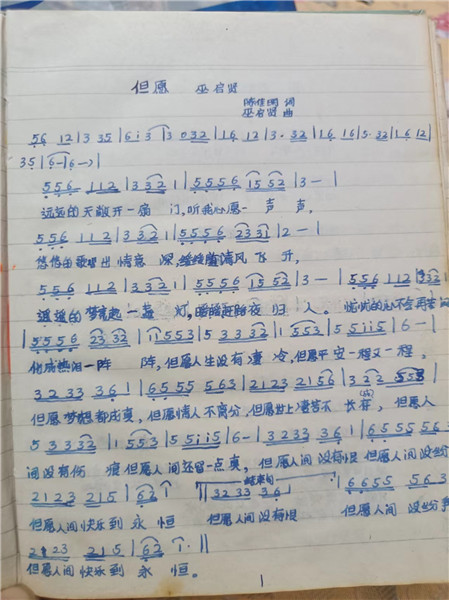 但愿 巫启贤
陈佳明 词
巫启贤 曲
56 12 | 3 35 | 6 i 3 | 3 0 32 | 16 12 | 3 · 32 | 16 16 | 5 · 32 | 16 12 |
35 | 6 - | 6 - > |
556 112 | 332 1 | 5556 15 52 | 3 - |
远远的天敞开一扇 门,听我心愿一 声 声,
556 112 | 332 1 | 5556 2331 | 2 - |
悠悠的歌唱出情意 深, 随清风 飞 升,
556 112 | 332 1 | 5556 15 52 | 3 - | 556 112
遥遥的梦亮起一盏 灯, 夜 归 人。
5556 23 32 | 11 553 | 5 33 32 | 1 553 | 5 5 ii5 | 6 - |
化成热泪一阵 阵,但愿人生没有凄 冷,但愿平安一程又一程,
3 233 36 1 | 6 555 563 | 2123 2156
但愿梦想都成真,但愿情人不离分,但愿世上 长存, 但愿人
5 3332 | 1 553 | 5 5 ii5 | 6 - | 3 233 36 1 | 6 555 56
间没有伤 痕但愿人间还留一点真,但愿人间没有恨 但愿人间没纷
2123 215 | 62 i 结束句 3233 36 1 | 6655 563
但愿人间快乐到 永 恒 但愿人间没有恨 但愿人间 没纷争
23 215 | 62 i · ||
但愿人间快乐到 永 恒。
1